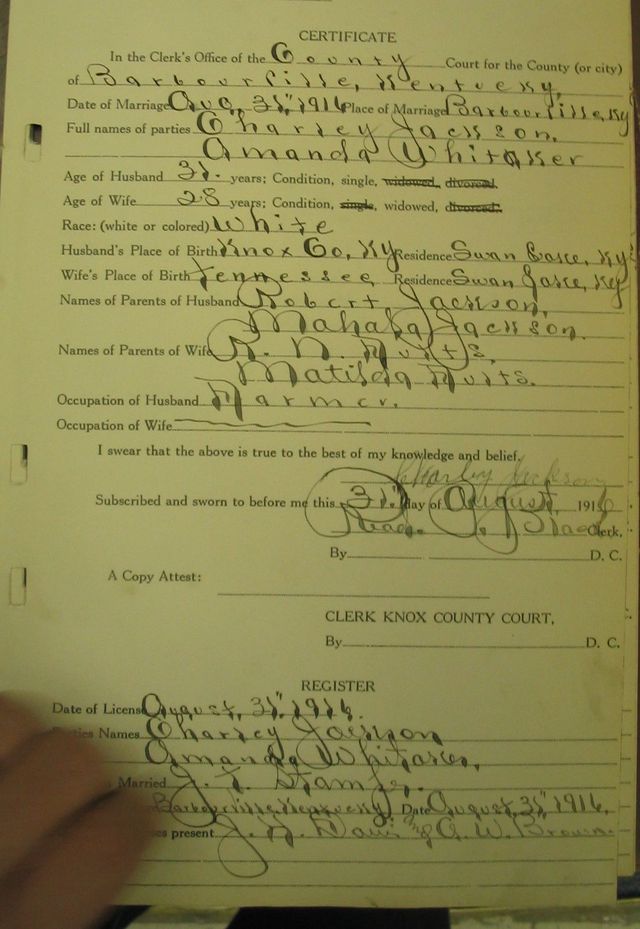 CERTIFICATE
In the Clerk's Office of the County Court for the County (or city)
of Barbourville, Kentucky,
Date of Marriage Aug, 31," 1916 Place of Marriage Barbourville, Ky
Full names of parties Charley Jackson,
Amanda Whitaker
Age of Husband 31. years; Condition, single, widowed, divorced.
Age of Wife 28 years; Condition, single, widowed, divorced.
Race: (white or colored) White
Husband's Place of Birth Knox Co, Ky Residence Swan Ky
Wife's Place of Birth Tennessee, Residence Swan Ky
Names of Parents of Husband Robert Jackson,
Mahala Jackson.
Names of Parents of Wife
Matilda
Occupation of Husband Farmer.
Occupation of Wife
I swear that the above is true to the best of my knowledge and belief.
Charley Jackson
Subscribed and sworn to before me this 31" day of August, 1916
Read P. Clerk.
By D. C.
A Copy Attest:
CLERK KNOX COUNTY COURT,
By D. C.
REGISTER
Date of License August, 31," 1916.
Names Charley Jackson
Amanda Whitaker,
Married J. T. Stamper.
Barbourville, Kentucky, Date August, 31" 1916,
present J. W. Davis & G. W. Brown.